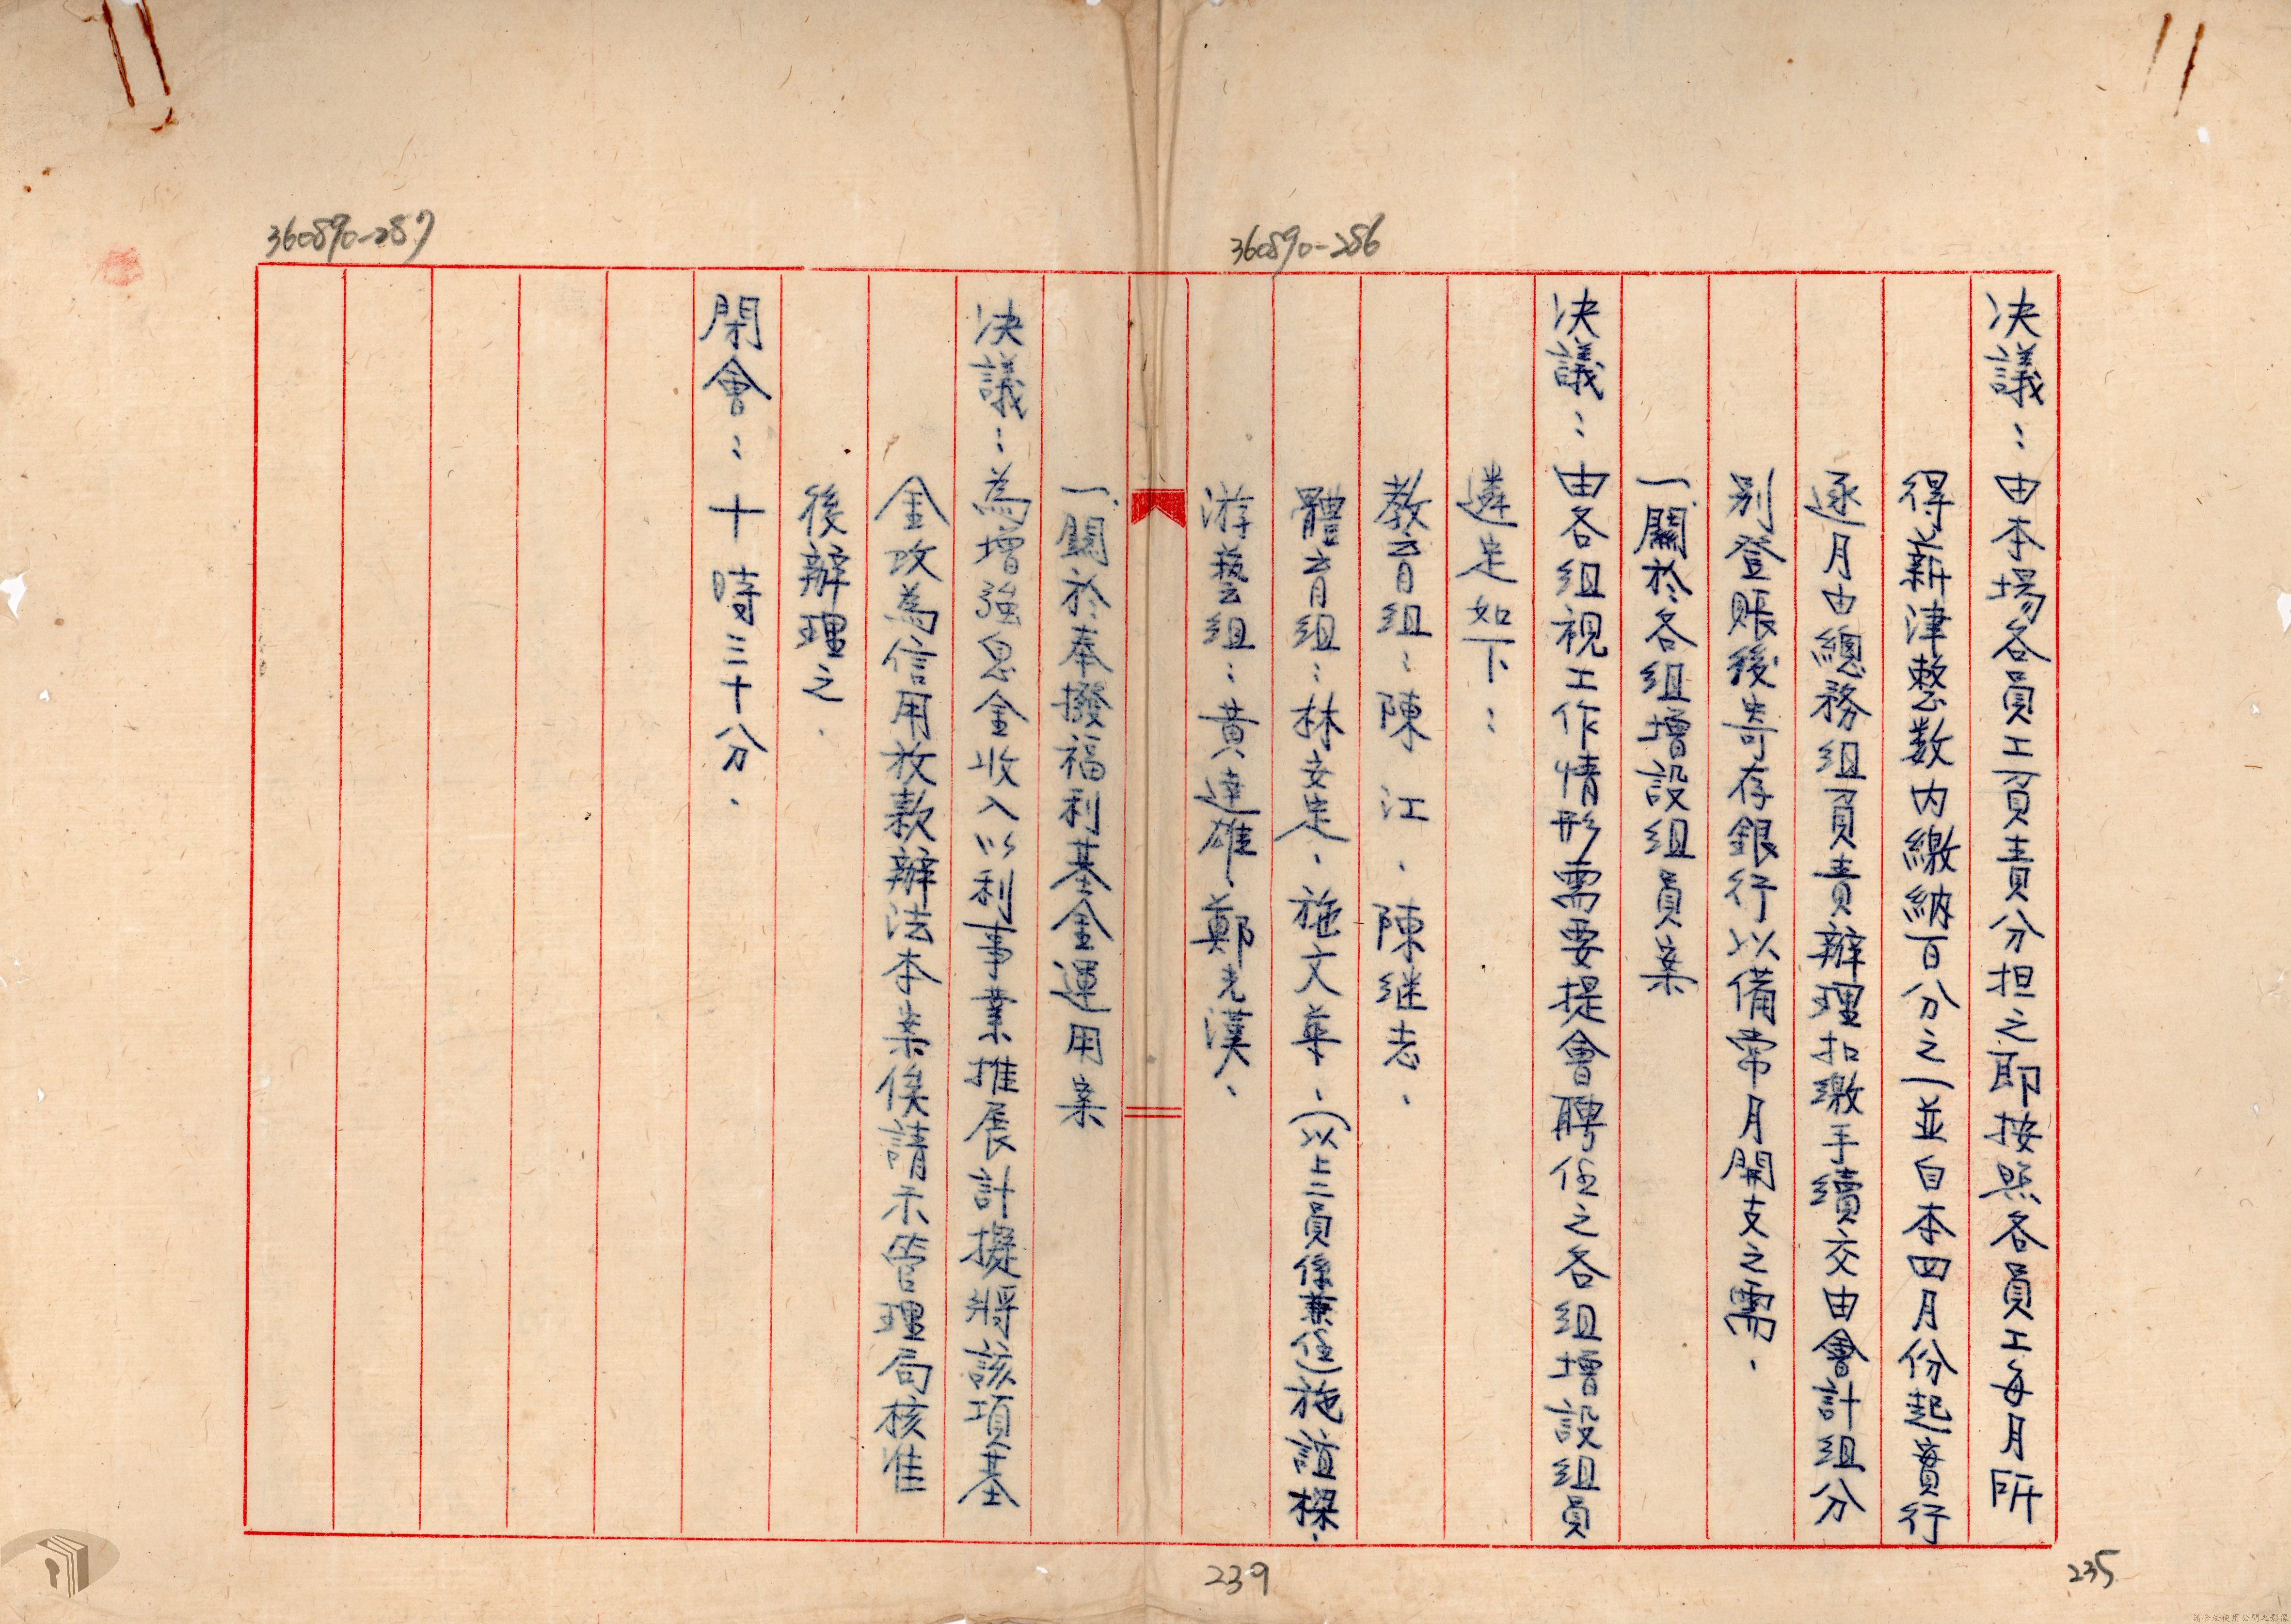 360890-286
決議：由本場各員工負責分担之即按照各員工每月所
得薪津整数内繳納百分之一並自本四月份起實行
逐月由總務組負責辦理扣繳手續交由會計組分
別登賬後寄存銀行以備常月開支之需．
一、關於各組增設組員案
決議：由各組視工作情形需要提會聘任之各組增設組員
遴定如下：
教育組：陳江、陳継志、
體育組：林安定、施文華、（以上二員係兼任）施誼樑、
游藝組：黃達雄、鄭光漢、
235
360890-287
一、關於奉撥福利基金運用案
決議：為增強息金收入以利事業推展計擬將該項基
金改為信用放款辦法本案俟請示管理局核准
後辦理之．
閉會：十時三十分．
239
請合法使用公開之影像